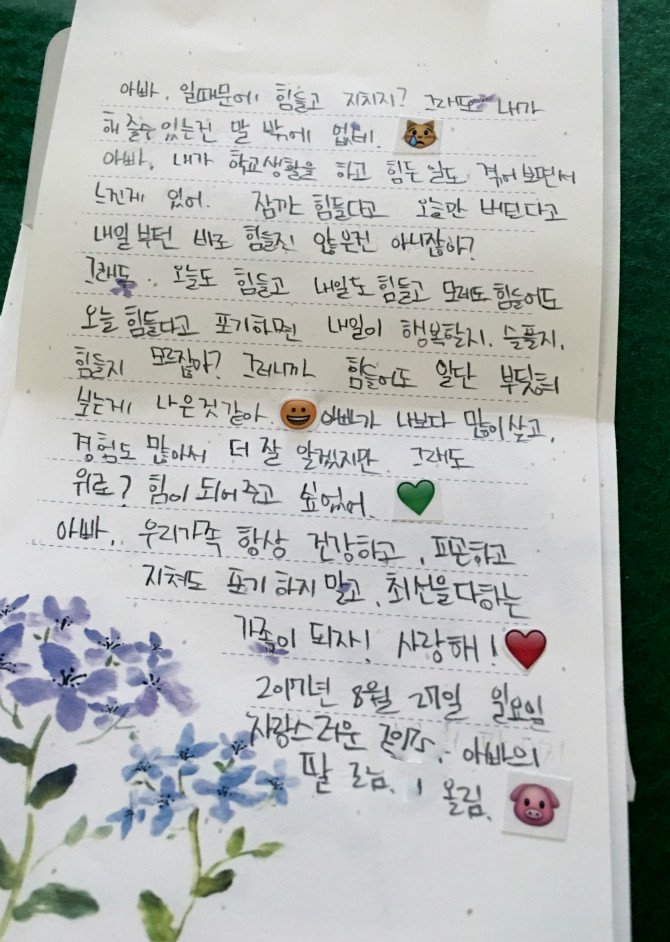 아빠, 일때문에 힘들고 지치지? 그래도 내가
해 줄수 있는건 말 밖에 없네.
아빠, 내가 학교생활을 하고 힘든 일도 겪어 보면서
느낀게 있어. 잠깐 힘들다고 오늘만 버틴다고
내일 부턴 바로 힘들진 않은건 아니잖아?
그래도, 오늘도 힘들고 내일도 힘들고 모레도 힘들어도
오늘 힘들다고 포기하면 내일이 행복할지, 슬플지,
힘들지 모르잖아? 그러니까 힘들어도 일단 부딪혀
보는게 나은것 같아 아빠가 나보다 많이 살고,
경험도 많아서 더 잘 알겠지만 그래도
위로? 힘이 되어 주고 싶었어.
아빠, 우리가족 항상 건강하고, 피곤하고
지쳐도 포기 하지 말고, 최선을 다하는
가족이 되자! 사랑해!
2017년 8월 27일 일요일
자랑스러운 아빠의
딸 올림.